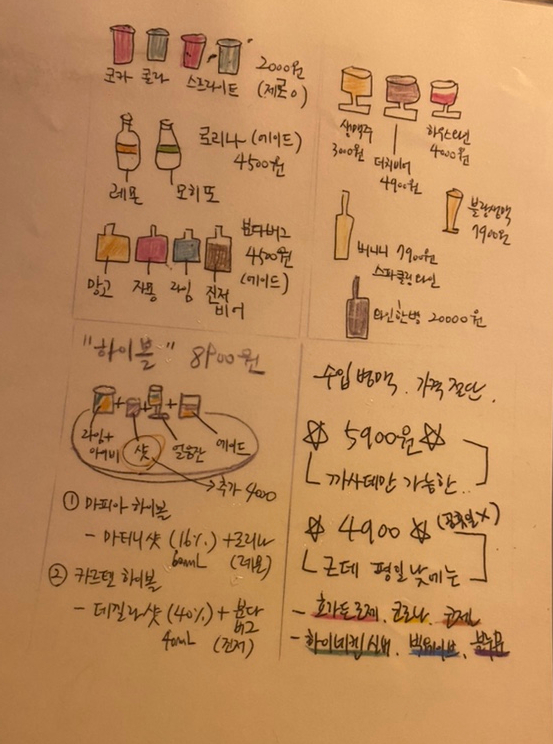 코카 콜라 스프라이트 2000원
(제로 0)
로리나 (에이드)
4500원
레몬 모히또
분다버그
4500원
(에이드)
망고 자몽 라임 진저
비어
생맥주
3000원
더치비어
4900원
하우스와인
4000원
버니니 7900원
스파클링 와인
블랑생맥
7900원
와인한병 20000원
"하이볼" 8900원
라임+
샷 얼음잔 에이드
추가 4000
① 마피아 하이볼
- 마티니샷 (16%) + 로리나
60mL (레몬)
② 카르텔 하이볼
- 데킬라샷 (40%) + 분다
버그
40mL (진저)
수입 병맥. 가격 절단.
☆ 5900원 ☆
까사데만 가능한..
☆ 4900 ☆ (공휴일X)
근데 평일 낮에는
- 호가든 로제, 코로나, 코젤
- 하이네켄 실버, 빅웨이브,